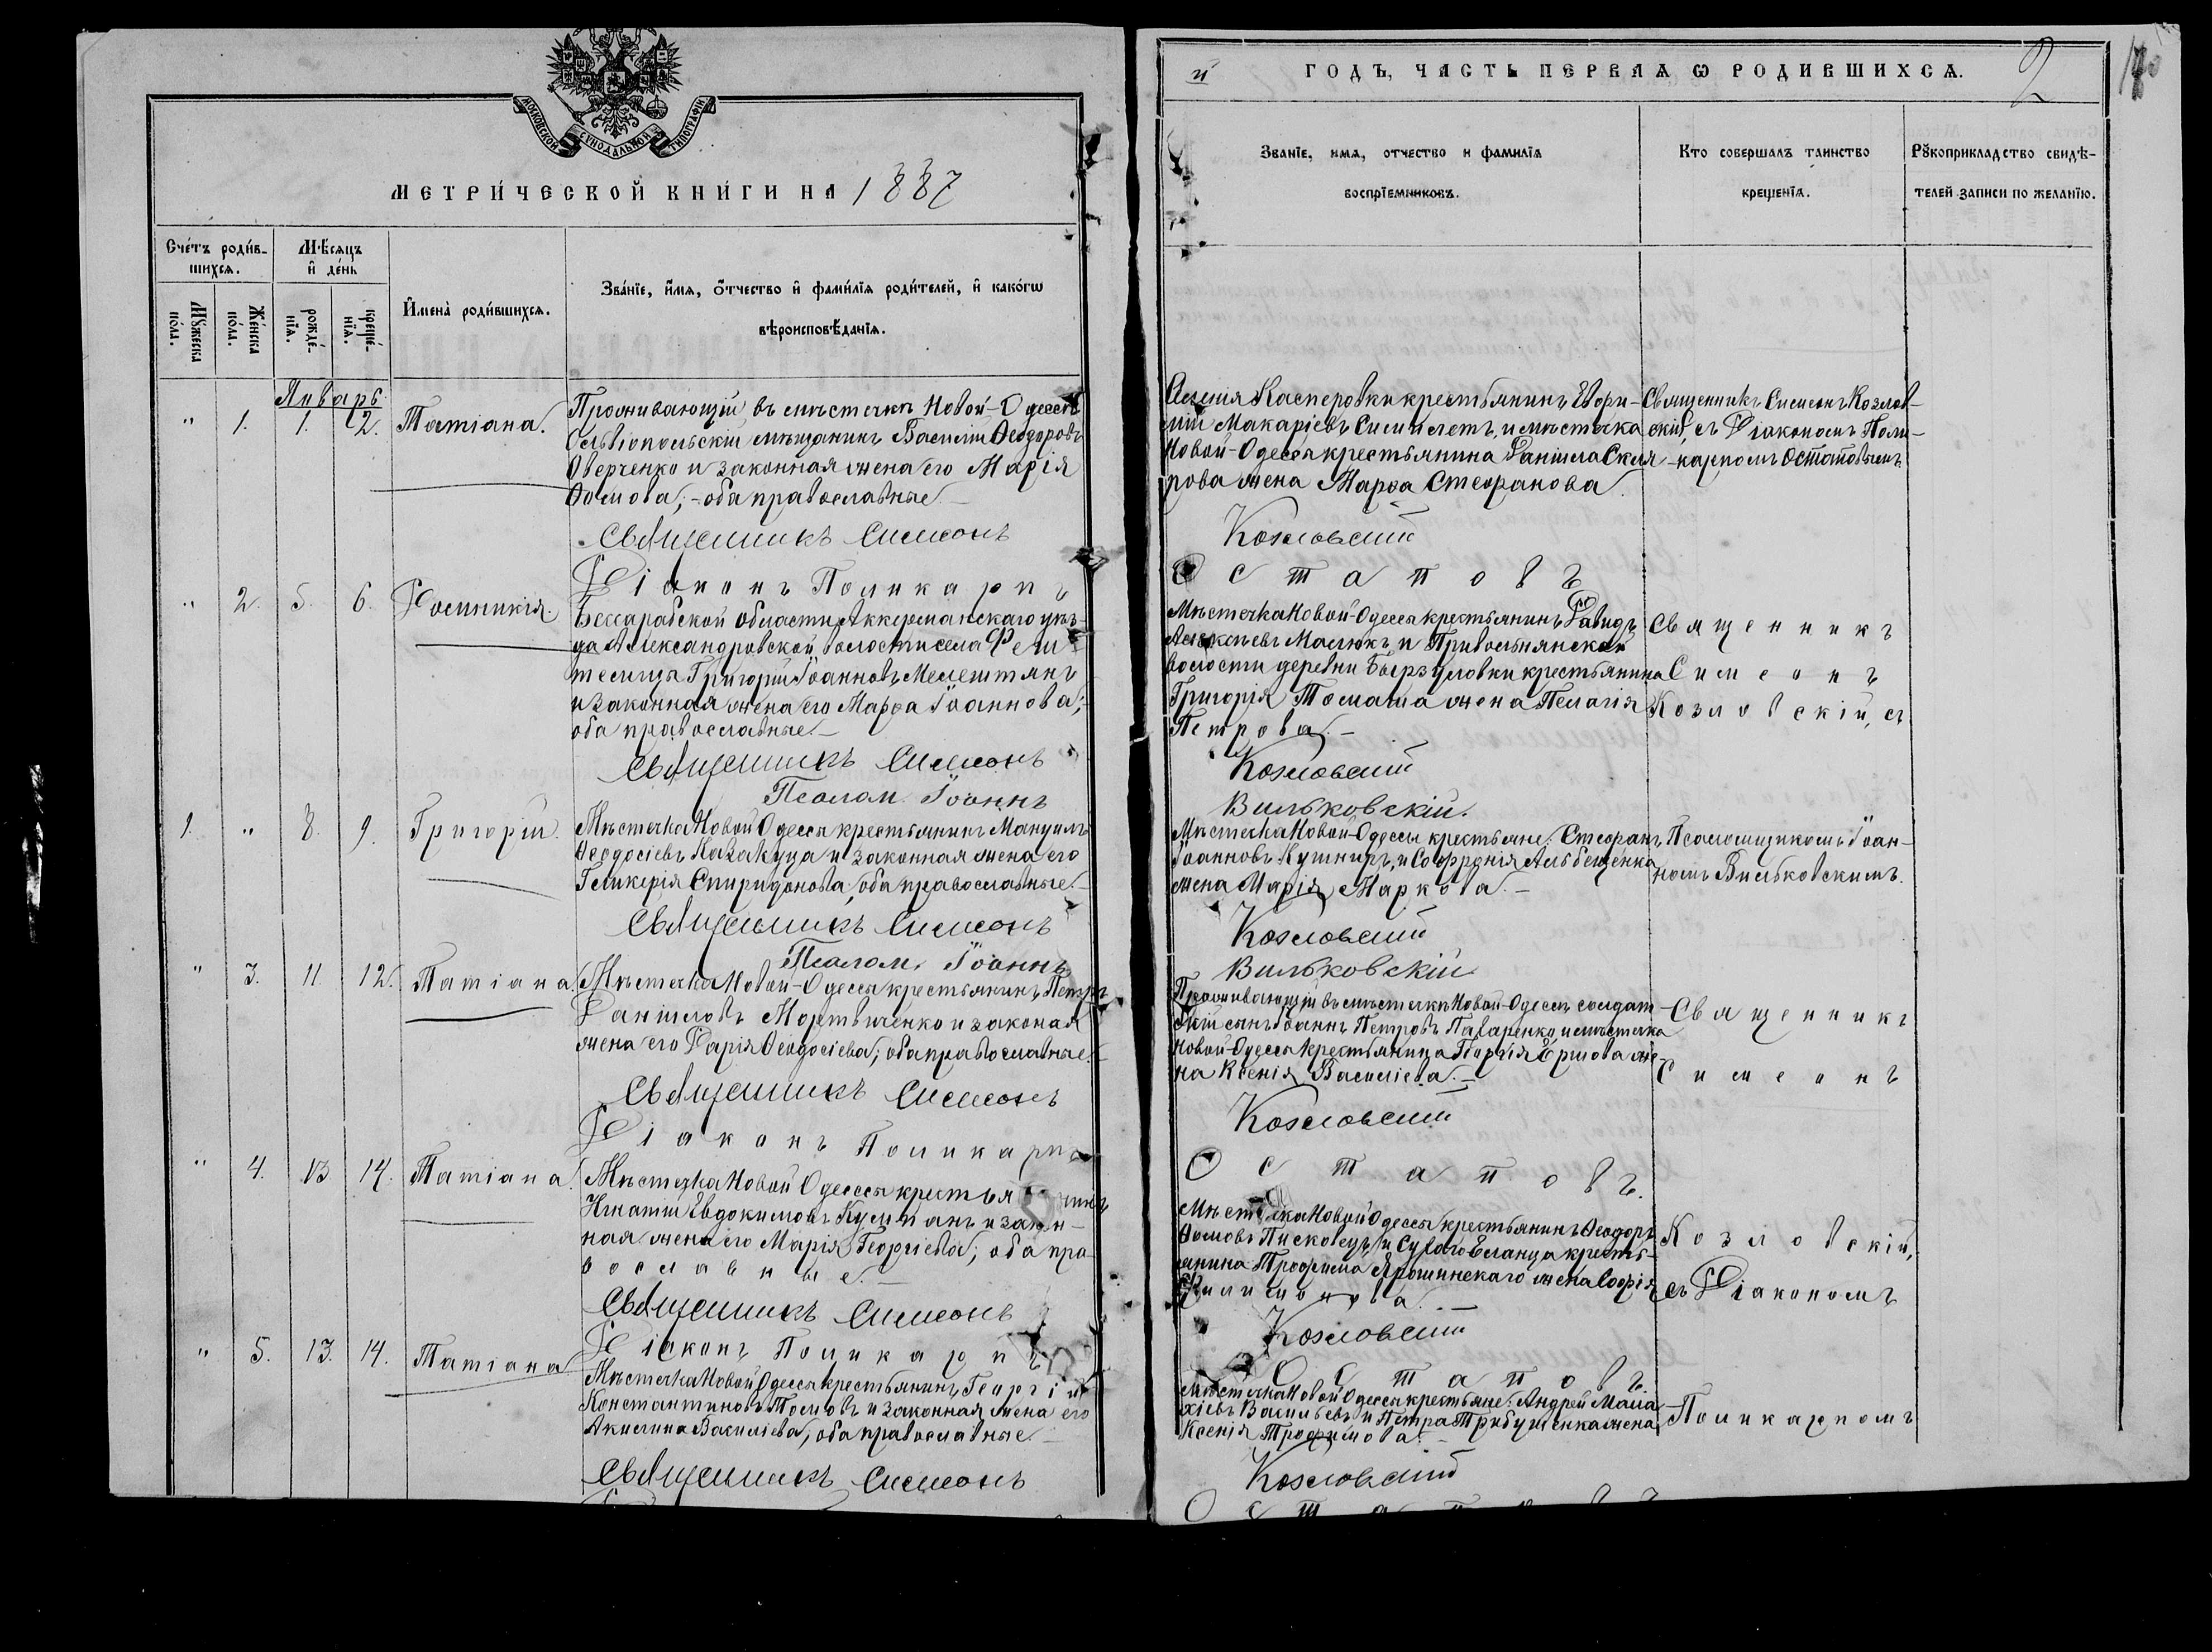 МОСКОВСКОЙ СѴНОДАЛЬНОЙ ТИПОГРАФІИ
МЕТРИ́ЧЕСКОЙ КНИ́ГИ НА 1887
Сче́тъ роди́в-
шихсѧ.
Мѣ́сѧцъ
и҆ де́нь
Мꙋ́жеска
по́ла.
Же́нска
по́ла.
рожде́-
нїѧ.
креще́-
нїѧ.
И҆мена̀ роди́вшихсѧ.
Зва́нїе, и҆́мѧ, ѻ҆́тчество и҆ фами́лїѧ роди́телей, и҆ како́гѡ
вѣроисповѣ́данїѧ.
Январь
" 1. 1. 2. Татіана.
Проживающій въ мѣстечкѣ Новой-Одессѣ
Ольвіопольскій мѣщанинъ Василій Ѳеодоровъ
Оверченко и законная жена его Марія
Ѳомова; - оба православные. -
Священникъ Симеонъ
Діаконъ Поликарпъ
" 2. 5. 6. Домникія.
Бессарабской области Аккерманскаго уѣз-
да Александровской волости села
Григорій Іоанновъ
и законная жена его Марѳа Іоаннова;
оба православные. -
Священникъ Симеонъ
Псалом. Іоаннъ
1. " 8. 9. Григорій.
Мѣстечка Новой Одессы крестьянинъ Мануилъ
Ѳеодосіевъ Казакуца и законная жена его
Гликерія Спиридонова, оба православные. -
Священникъ Симеонъ
Псалом. Іоаннъ
" 3. 11. 12. Татіана.
Мѣстечка Новой-Одессы крестьянинъ Петръ
Даніиловъ Мертвиченко и законая
жена его Дарія Ѳеодосіева; оба православные. -
Священникъ Симеонъ
Діаконъ Поликарпъ
" 4. 13 14. Татіана.
Мѣстечка Новой Одессы крестьянинъ
Игнатій Евдокимовъ и закон-
ная жена его Марія Георгіева; оба пра-
вославные. -
Священникъ Симеонъ
Діаконъ Поликарпъ
" 5. 13. 14. Татіана
Мѣстечка Новой Одессы крестьянинъ Георгій
Константиновъ Томовъ и законная жена его
Акилина Василіева; оба православные. -
Священникъ Симеонъ
й ГОДЪ, ЧАСТЬ ПЕРВАѦ Ѡ РОДИВШИХСѦ. 2
Званїе, имѧ, отчество и фамилїѧ
воспрїемниковъ.
Кто совершалъ таинство
крещенїѧ.
Рꙋкоприкладство свидѣ-
телей записи по желанїю.
Касперовки крестьянинъ
Макаріевъ и мѣстечка
Новой-Одессы крестьянина Даніила Скля-
рова жена Марѳа Стефанова.
Священникъ Симеонъ Козлов-
скій, съ Діакономъ Поли-
карпомъ Остаповымъ
Козловскій
Остаповъ
Мѣстечка Новой-Одессы крестьянинъ Давидъ
Алексѣевъ Малюкъ, и Привольнянской
волости деревни крестьянина
Григорія Томаша жена Пелагія
Петрова. -
Священникъ
Симеонъ
Козловскій, съ
Козловскій
Вильковскій.
Мѣстечка Новой-Одессы крестьяне: Стефанъ
Іоанновъ Кушниръ, и Софронія
жена Марія Маркова. -
Псаломщикомъ Іоан-
номъ Вильковскимъ.
Козловскій
Вильковскій
Проживающій въ мѣстечкѣ Новой-Одессѣ солдат-
скій сынъ Іоаннъ Петровъ и мѣстечка
Новой-Одессы крестьянина Георгія Ершова же-
на Ксенія Василіева. -
Священникъ
Симеонъ
Козловскій
Остаповъ.
Мѣстечка Новой Одессы крестьянинъ Ѳеодоръ
Ѳомовъ и Сухаго Еланца кресть-
янина Трофима Ярошинскаго жена Софія
Филимонова. -
Козловскій,
съ Діакономъ
Козловскій
Остаповъ.
Мѣстечка Новой Одессы крестьяне: Андрей Мала-
хіевъ Васильевъ и Петра Трибушенка жена
Ксенія Трофимова. -
Поликарпомъ
Козловскій